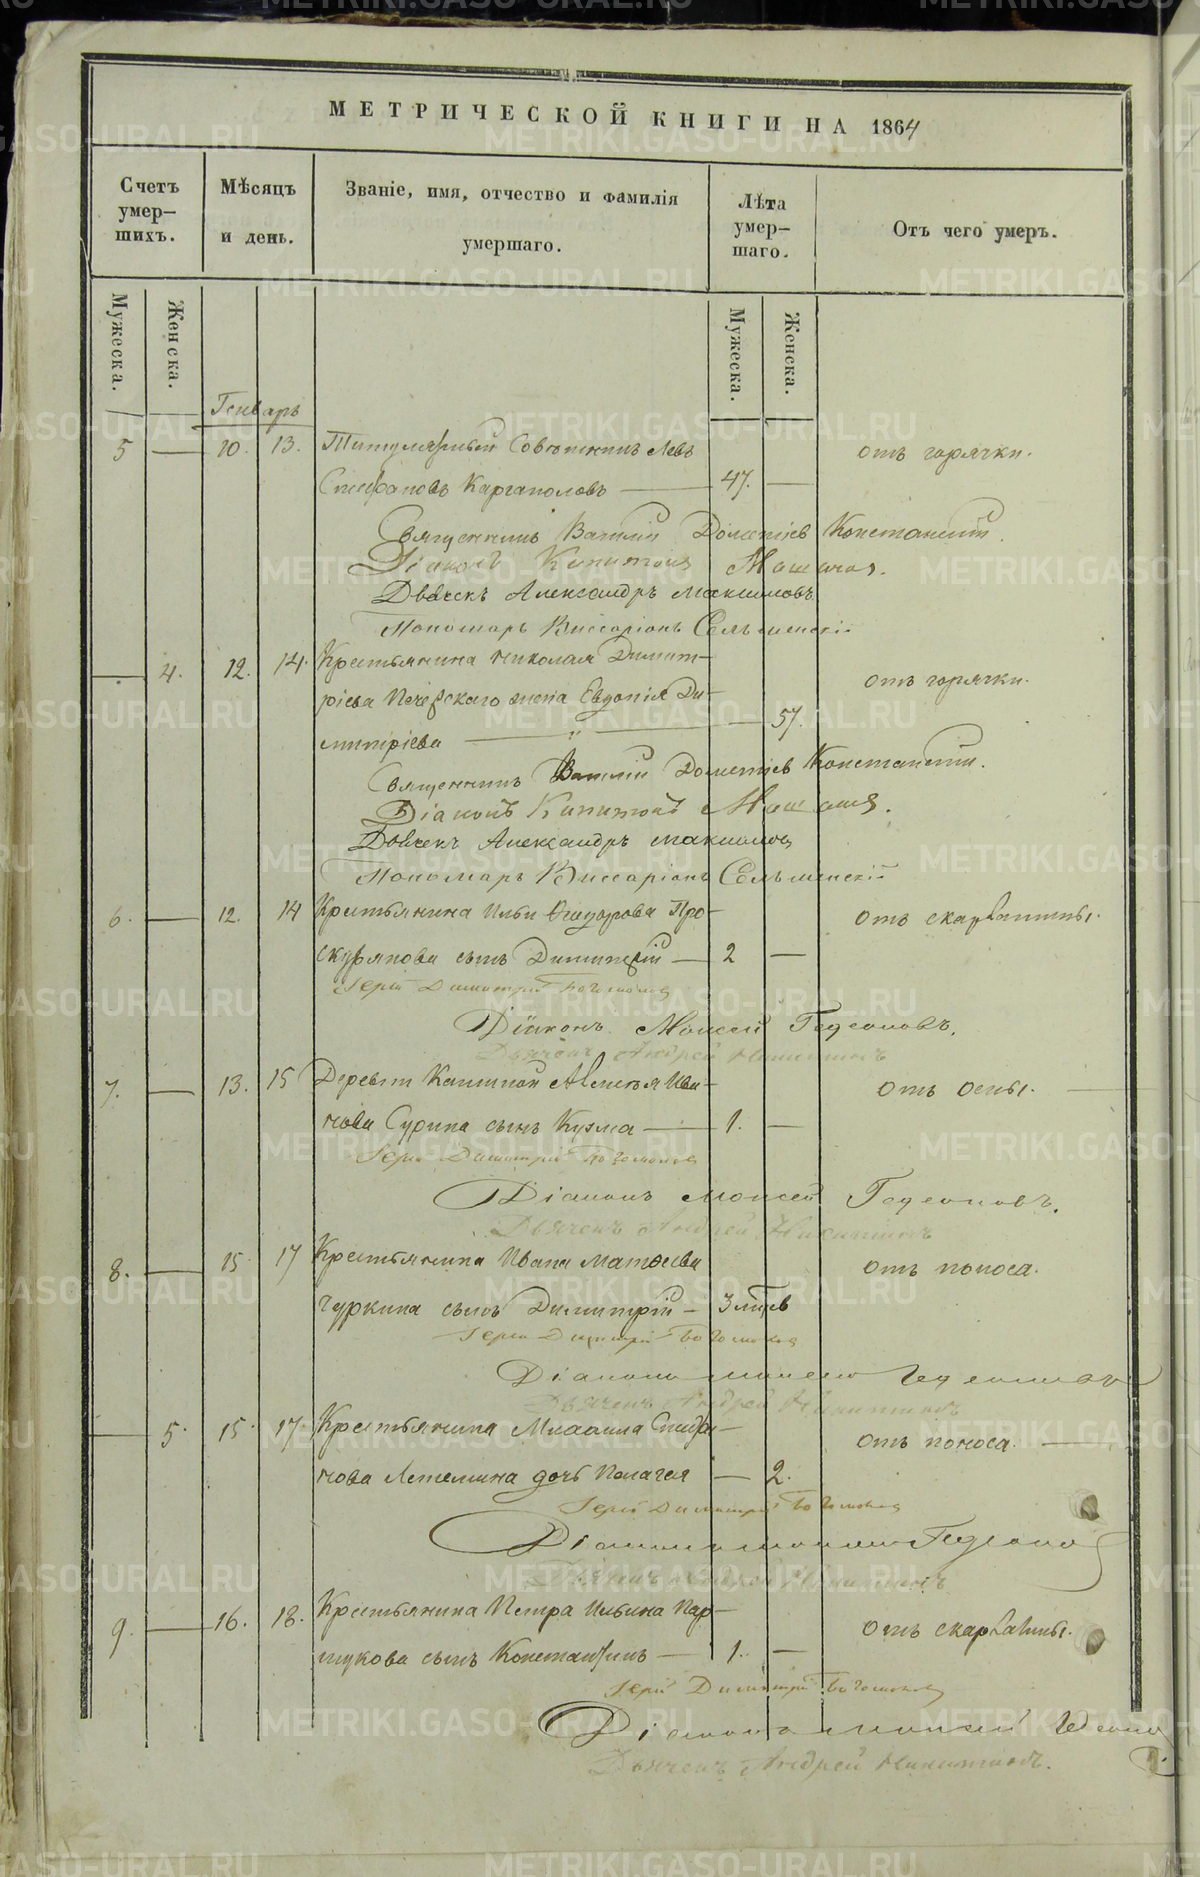 МЕТРИЧЕСКОЙ КНИГИ НА 1864
Счетъ умер–шихъ.
Мѣсяцъ и день.
Званіе, имя, отчество и фамилія умершаго.
Лѣта умер–шаго.
Отъ чего умеръ.
Мужеска.
Женска.
Мужеска.
Женска.
Генварь
5 — 10. 13. Титулярный Совѣтникъ Левъ отъ горячки.
Стефановъ Каргаполовъ — 47. —
Священникъ Василій Дометіев Константин.
Діаконъ Капитонъ
Дьячекъ Александръ Максимовъ
Пономарь Виссаріонъ
— 4. 12. 14. Крестьянина Николая Димит– отъ горячки.
ріева Печерскаго жена Евдокія Ди–
митріева — " — 57.
Священникъ Василій Дометіев Константин.
Діаконъ Капитонъ
Дьячекъ Александръ Максимовъ
Пономарь Виссаріонъ
6. — 12. 14 Крестьянина Ильи Ѳеодорова Про– отъ скарлатины.
скурякова сынъ Димитрій — 2 —
Іерей Димитрій Богомолов
Діаконъ Моисей Гедеоновъ.
Дьячекъ Андрей Никитинъ
7. — 13. 15 Деревни Ива– отъ оспы. —
нова Сурина сынъ Кузма — 1. —
Іерей Димитрій Богомолов
Діаконъ Моисей Гедеоновъ.
Дьячекъ Андрей Никитинъ
8. — 15 17 Крестьянина Ивана Матѳеева отъ поноса.
Чуркина сынъ Димитрій – 3 лѣтъ
Іерей Димитрій Богомолов
Діаконъ Моисей Гедеоновъ
Дьячекъ Андрей Никитинъ
— 5. 15. 17. Крестьянина Михаила Стефа– отъ поноса. —
нова дочь Пелагея — 2.
Іерей Димитрій Богомолов
Діаконъ Моисей Гедеонов
Дьячекъ Андрей Никитинъ
9. — 16. 18. Крестьянина Петра Ильина Пар– отъ скарлатины.
шукова сынъ Константинъ — 1. —
Іерей Димитрій Богомолов
Діаконъ Моисей Гедеонов
Дьячекъ Андрей Никитинъ.
METRIKI.GASO-URAL.RU